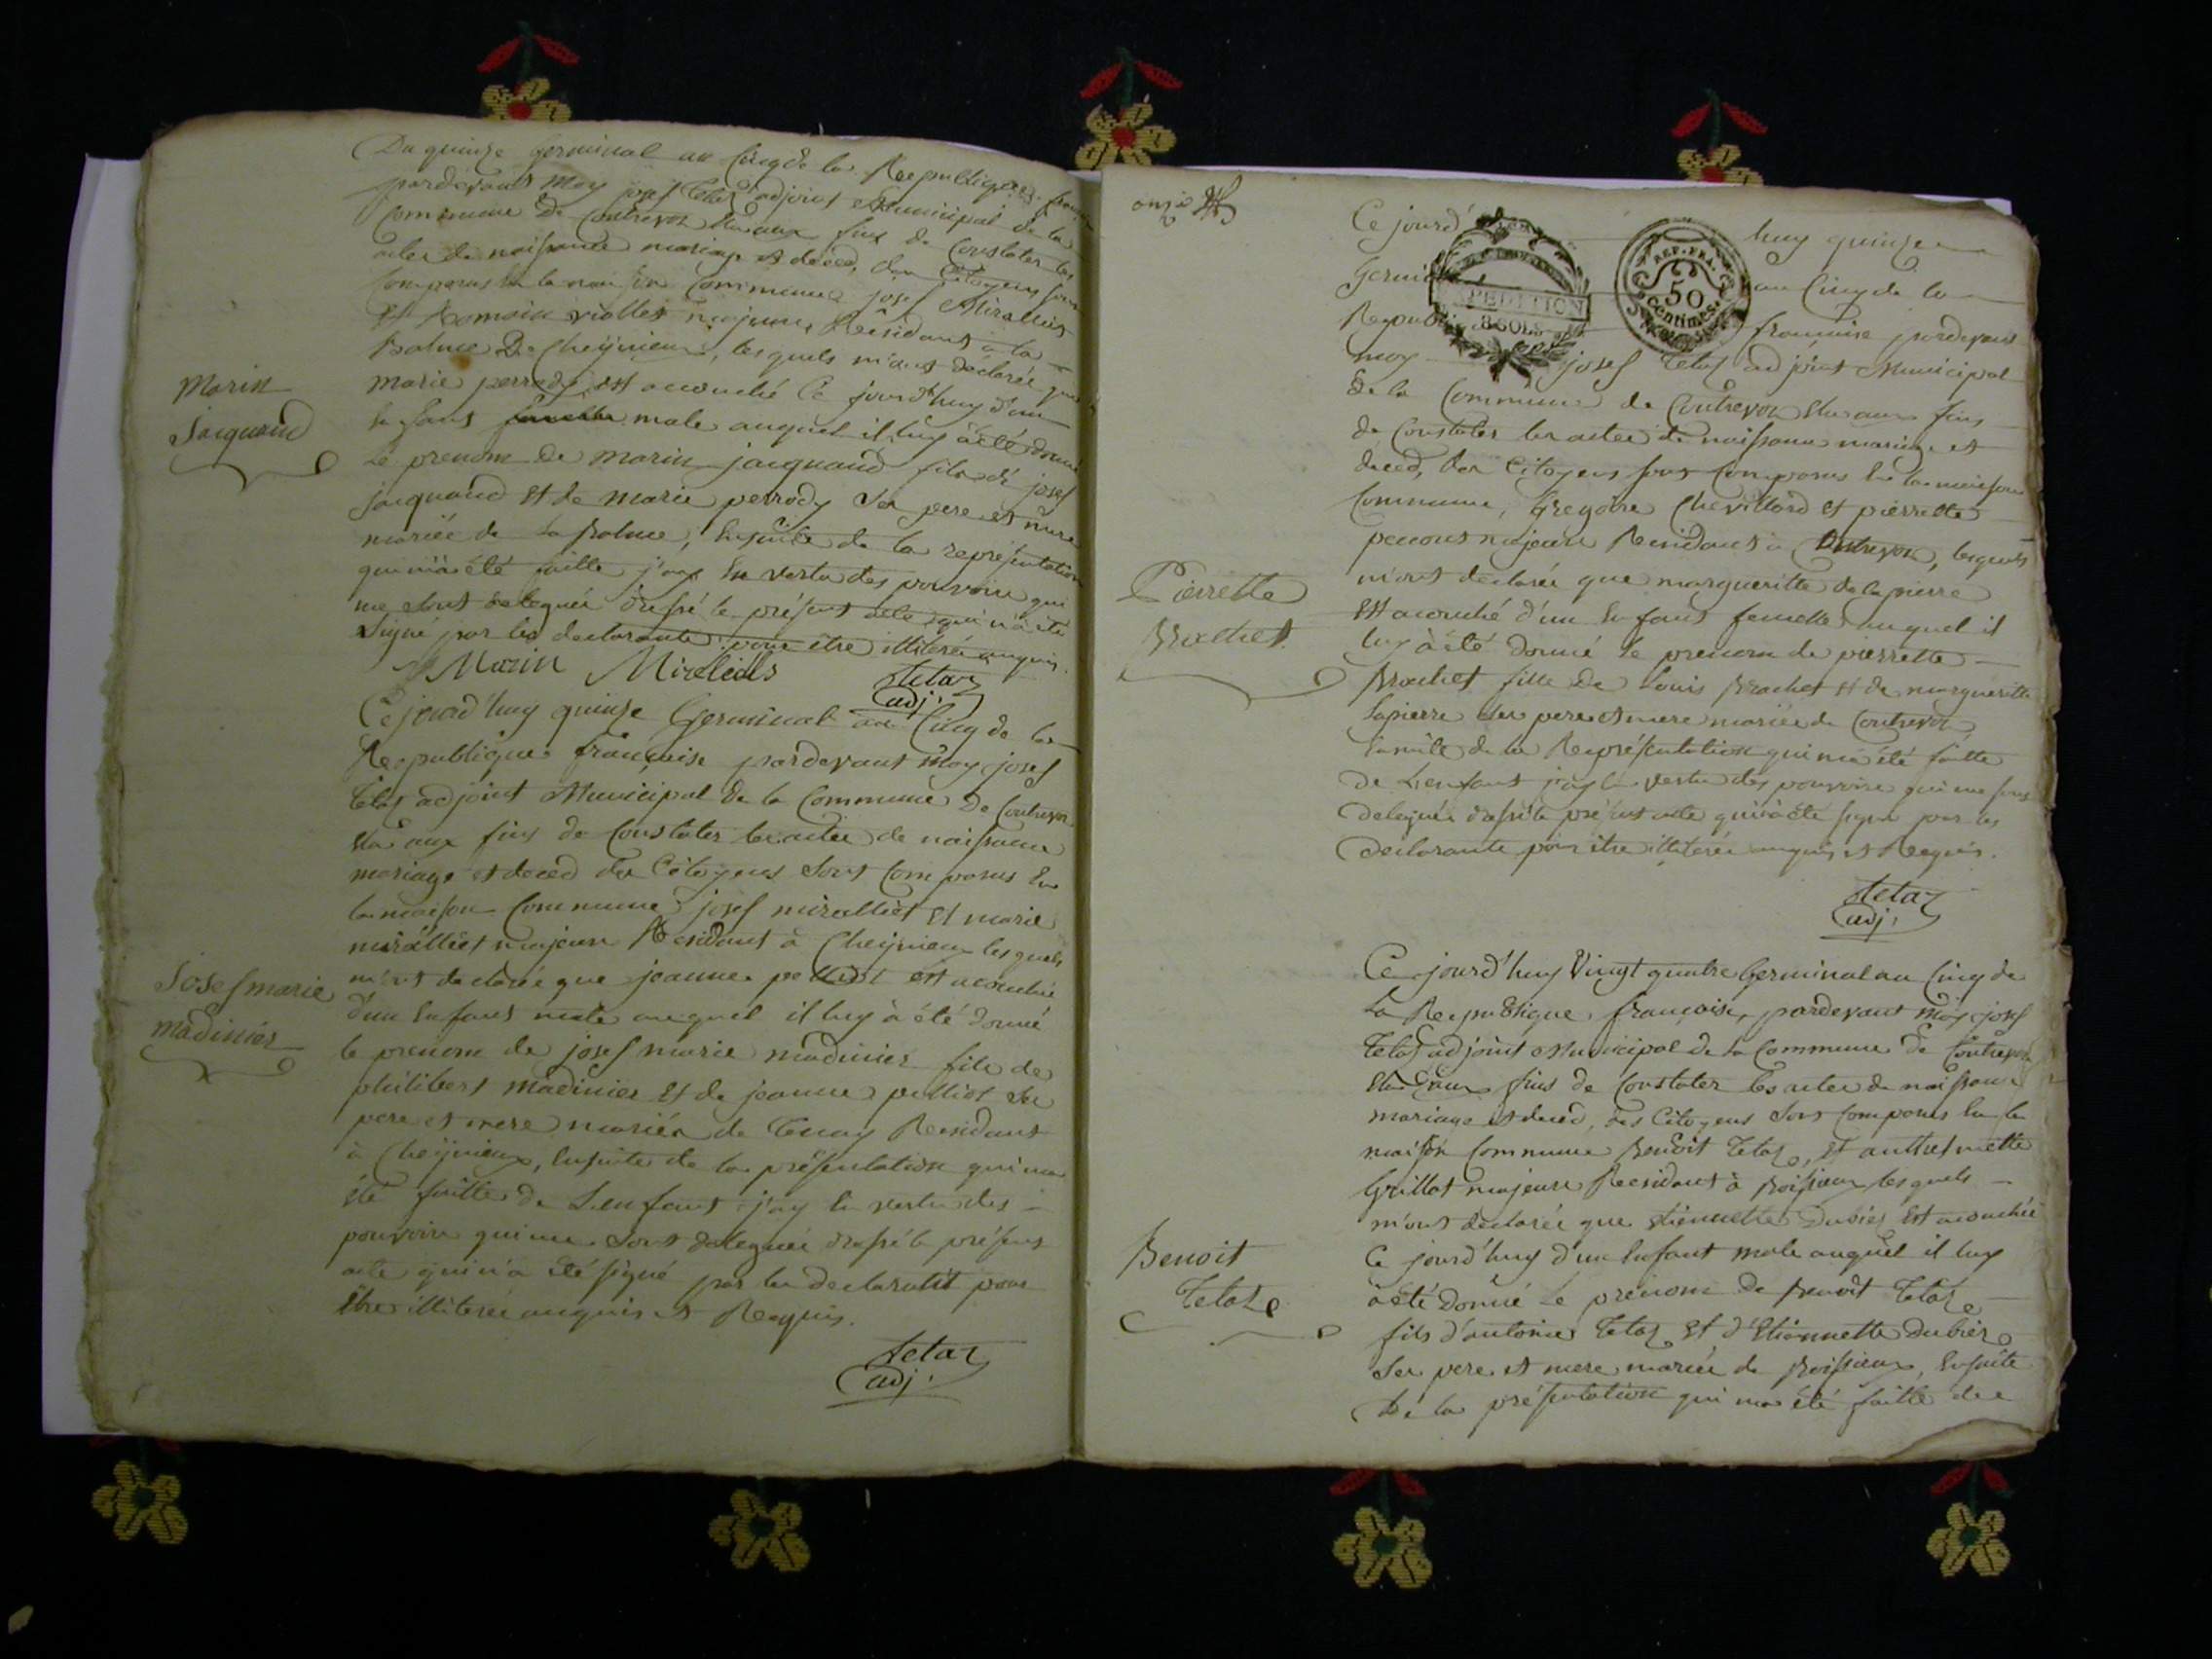 Du quinze germinal an Cinq de la Republique
pardevant Moy josef tetaz adjoint Municipal de la
Commune De Contrevoz Elu aux fins de Constater les
actes de naissance mariage et deced, des Citoyens sont
Comparus en la maison Commune josef Miralliet
Et Romain viallet majeurs Résidant à la
Balme De Cheÿnieux, lesquels m'ont déclarée que
marie perrody est acouché Ce jourd'huy d'un
enfant male auquel il luy à été donné
Le prenom De marin jacquand fils de josef
jacquand Et de Marie perrody Ses pere et mere
mariée de La balme, Ensuite de la représentation
qui m'a été faitte j'ay En vertu des pouvoirs qui
me sont delegués dressé le présent acte qui n'a été
Signé par les declarants pour être illiterée enquis.
Marin Miraliets
tetaz
adj:
Marin
Jacquand
Ce jourd'huy quinze Germinal an Cinq de la
Republique française pardevant Moy josef
tetaz adjoint Municipal de la Commune De Contrevoz
Elu aux fins de Constater les actes de naissance
mariage et deced des Citoyens Sont Comparus En
la maison Commune josef miralliet Et marie
miralliet majeurs Residant à Cheÿnieux lesquels
m'ont declarée que jeanne est acouchée
d'un Enfant male auquel il luy à été donné
le prenom de josef marie madinier fils de
philibert Madinier Et de jeanne pelliot Ses
pere et mere mariés de Residant
à Cheÿnieux, Ensuite de la présentation qui m'a
été faitte de L'enfant j'ay En vertu des
pouvoirs qui me Sont delegués dressé le présent
acte qui n'a été signé par les declarants pour
être illiterée enquis et Requis.
tetaz
adj:
Josef marie
Madinier
onze
Ce jourd' huy quinze
Germinal an Cinq de la
Republique française pardevant
moy josef tetaz adjoint Municipal
De la Commune de Contrevoz Elu aux fins
de Constater les actes de naissance mariage et
deced, des Citoyens sont Comparus En la maison
Commune, Gregoire Chevillard Et pierrette
majeurs Residant à Contrevoz, lesquels
m'ont declarée que margueritte delapierre
Est acouché d'un Enfant femelle auquel il
luy à été donné le prenom de pierrette
Brochet fille De Louis Brochet Et de margueritte
lapierre Ses pere et mere mariée de Contrevoz
Ensuite de la Représentation qui m'a été faitte
de L'enfant j'ay En vertu des pouvoirs qui me sont
delegués dressé le présent acte qui n'a été signé par les
declarants pour être illiterée enquis et Requis.
tetaz
adj:
REP. FRA.
50
centimes
8 SOLS
Pierrette
Brochet
Ce jourd'huy Vingt quatre Germinal an Cinq de
La Republique française, pardevant Moy josef
tetaz adjoint Municipal de La Commune de Contrevoz
Elu aux fins de Constater les actes de naissance
mariage et deced, des Citoyens Sont Comparus En la
maison Commune Benoit tetaz, Et anthelmette
Grillot majeurs Residant à Boissieux lesquels
m'ont declarée que Etiennette Dubiez Est acouchée
Ce jourd'huy d'un Enfant male auquel il luy
à été donné Le prénom De Benoit tetaz
fils d'antoine tetaz Et d'Etiennette Dubiez
Ses pere et mere mariée de Boissieux, Ensuite
De la présentation qui m'a été faitte de
Benoit
tetaz